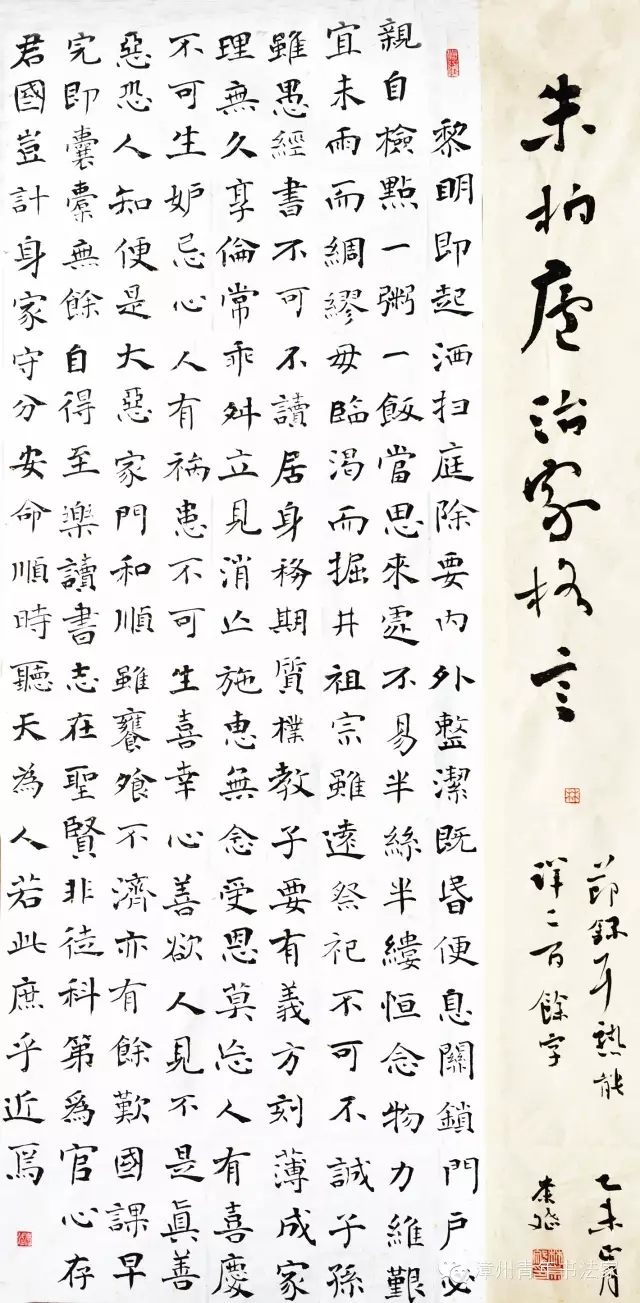 朱柏廬治家格言
節錄耳熟能
詳二百餘字
乙未正月
黎明即起洒扫庭除要内外整潔既昬便息關鎖門戶必
親自檢點一粥一飯當思來處不易半絲半縷恒念物力維艱
宜未雨而綢繆毋臨渴而掘井祖宗雖遠祭祀不可不誠子孫
雖愚經書不可不讀居身務期質樸教子要有義方刻薄成家
理無久享倫常乖舛立見消亡施惠無念受恩莫忘人有喜慶
不可生妒忌心人有禍患不可生喜幸心善欲人見不是真善
惡恐人知便是大惡家門和順雖饔飧不濟亦有餘歡國課早
完即囊橐無餘自得至樂讀書志在聖賢非徒科第爲官心存
君國豈計身家守分安命順時聽天為人若此庶乎近焉
漳州青年书法家